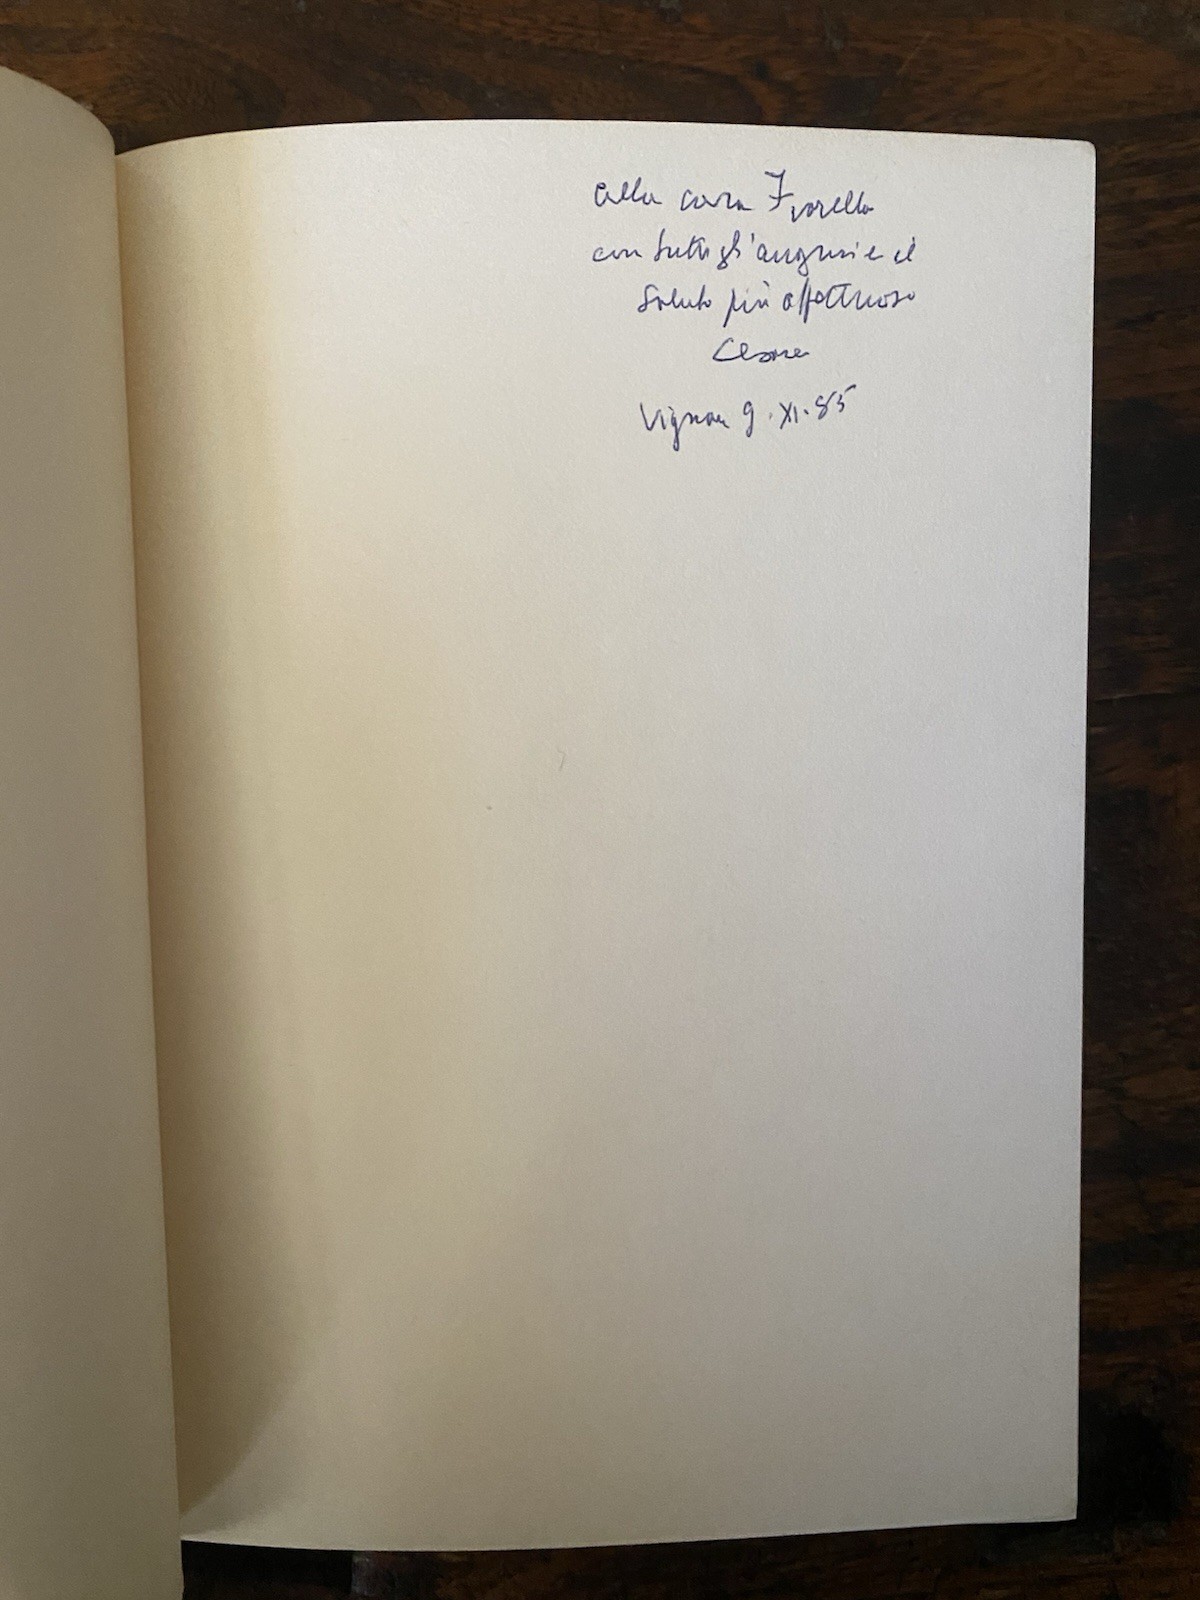 alla cara Fiorella
con tutti gli auguri e il
saluto più affettuoso
Cesare
9.XI.85